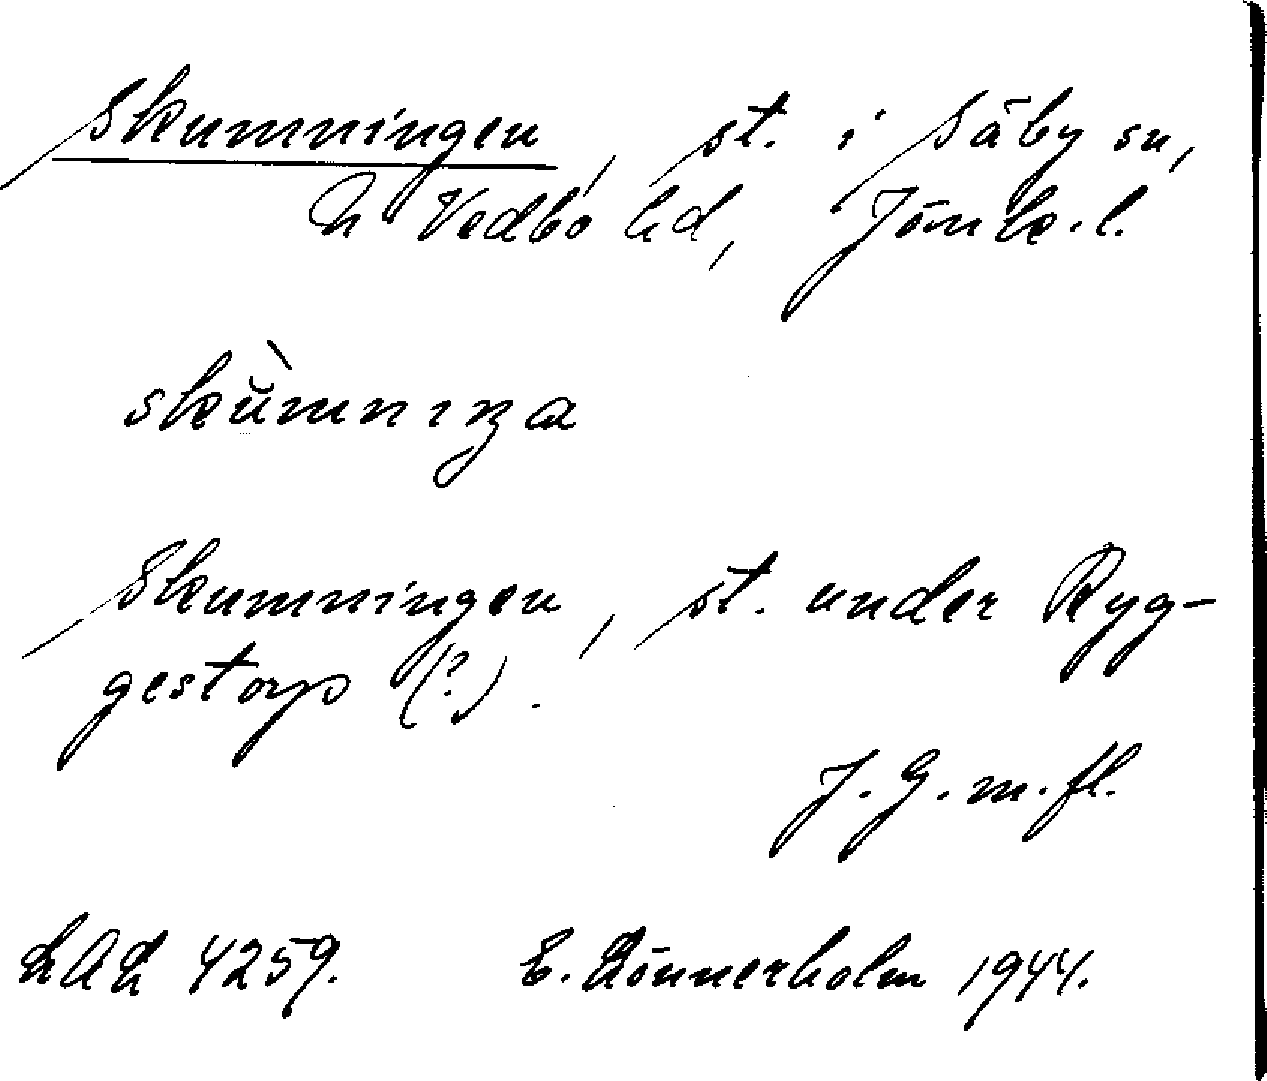 Skumningen, st. i Säby sn,
N Vedbo hd, Jönk. l.
skŭ̀mnıŋa
Skumningen, st. under Ryg-
gestorp (?).
J. G. m. fl.
LAL 4259. E. Lönnerholm 1944.